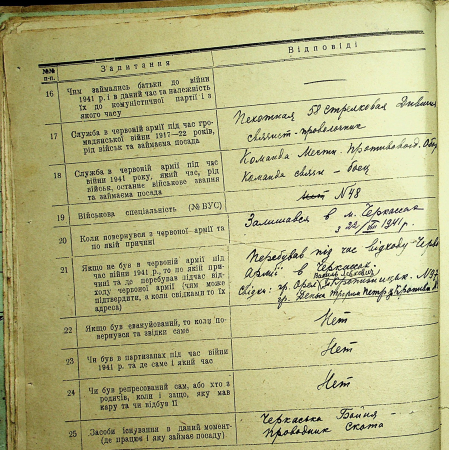 №№ п-п.
Запитання
Відповіді
16
Чим займались батьки до війни
1941 р. і в даний час та належність
їх до комуністичної партії і з
якого часу
17
Служба в червоній армії під час гро-
мадянської війни 1917—22 років,
рід військ та займаєма посада
Пехотная 58 Стрелковая Дивизия
связист-проволочник
18
Служба в червоній армії під час
війни 1941 року, який час, рід
військ, останнє військове звання
та займаєма посада
Команда Местн. Противовозд. Об
Команда связи - боец
19
Військова спеціальність (№ ВУС)
№48
20
Коли повернувся з червоної армії та
по якій причині
Залишався в м. Черкассах
з 22/VIII 1941 р.
21
Якщо не був в червоній армії під
час війни 1941 р., то по якій при-
чині та де перебував підчас від-
ходу червоної армії (чим може
підтвердити, а коли свідками то їх
адреса)
Перебував під час відходу Черво
Армії в Черкассах.
гр.
22
Якщо був евакуйований, то коли по-
вернувся та звідки саме
Нет
23
Чи був в партизанах під час війни
1941 р. та де саме і який час
Нет
24
Чи був репресований сам, або хто з
родичів, коли і защо, яку мав
кару та чи відбув її
Нет
25
Засоби існування в даний момент
(де працює і яку займає посаду)
Черкаська Бойня
Проводник Скота